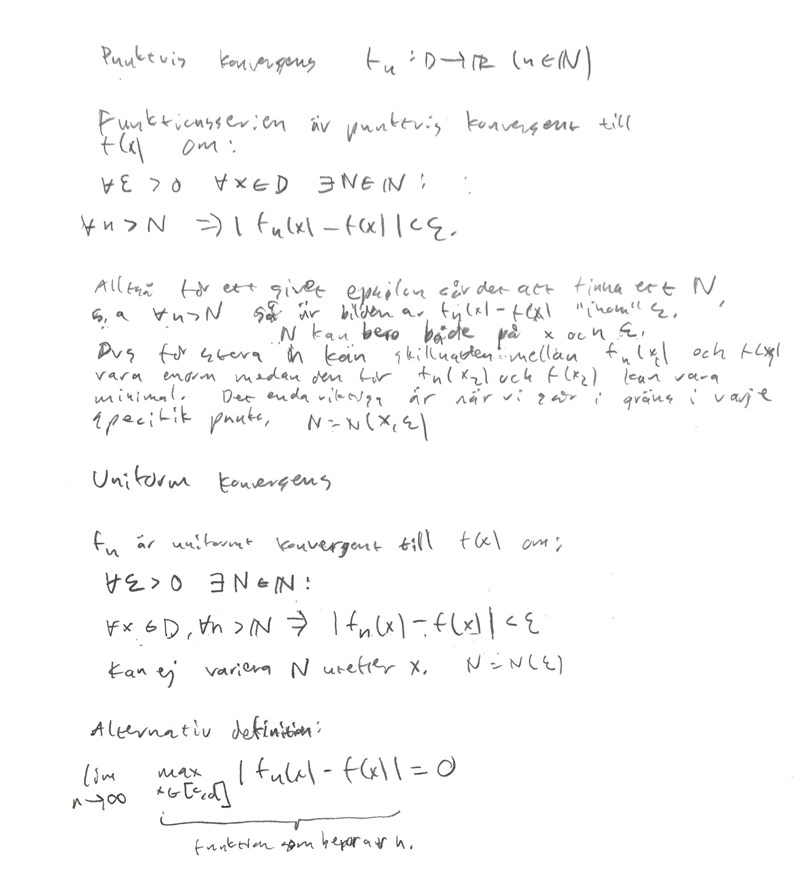 Punktvis konvergens fₙ : D → ℝ (n ∈ ℕ)
Funktionsserien är punktvis konvergent till
f(x) om:
∀ε > 0 ∀x ∈ D ∃N ∈ ℕ :
∀n > N ⇒ |fₙ(x) − f(x)| < ε.
Alltså för ett givet epsilon går det att finna ett N,
s.a ∀n>N så är bilden av fₙ(x) − f(x) "inom" ε.
N kan bero både på x och ε.
Dvs för stora n kan skillnaden mellan fₙ(x₁) och f(x₁)
vara enorm medan den för fₙ(x₂) och f(x₂) kan vara
minimal. Det enda viktiga är när vi går i gräns i varje
specifik punkt, N = N(x, ε)
Uniform konvergens
fₙ är uniformt konvergent till f(x) om:
∀ε > 0 ∃N ∈ ℕ :
∀x ∈ D, ∀n > N ⇒ |fₙ(x) − f(x)| < ε
Kan ej variera N utefter x. N = N(ε)
Alternativ definition:
lim n→∞ max x∈[c,d] |fₙ(x) − f(x)| = 0
funktion som beror av n.